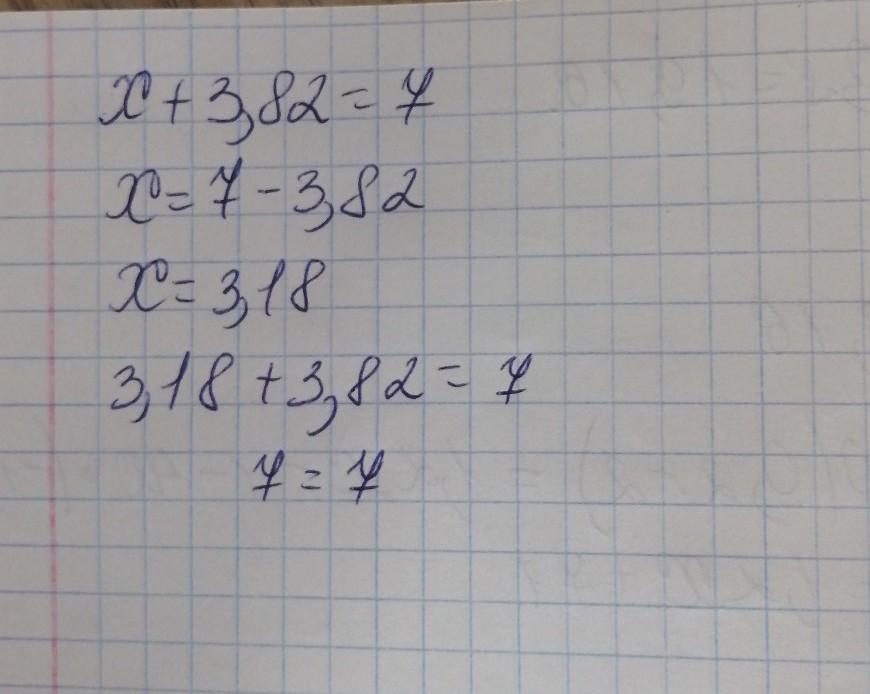 x + 3,82 = 7
x = 7 - 3,82
x = 3,18
3,18 + 3,82 = 7
7 = 7